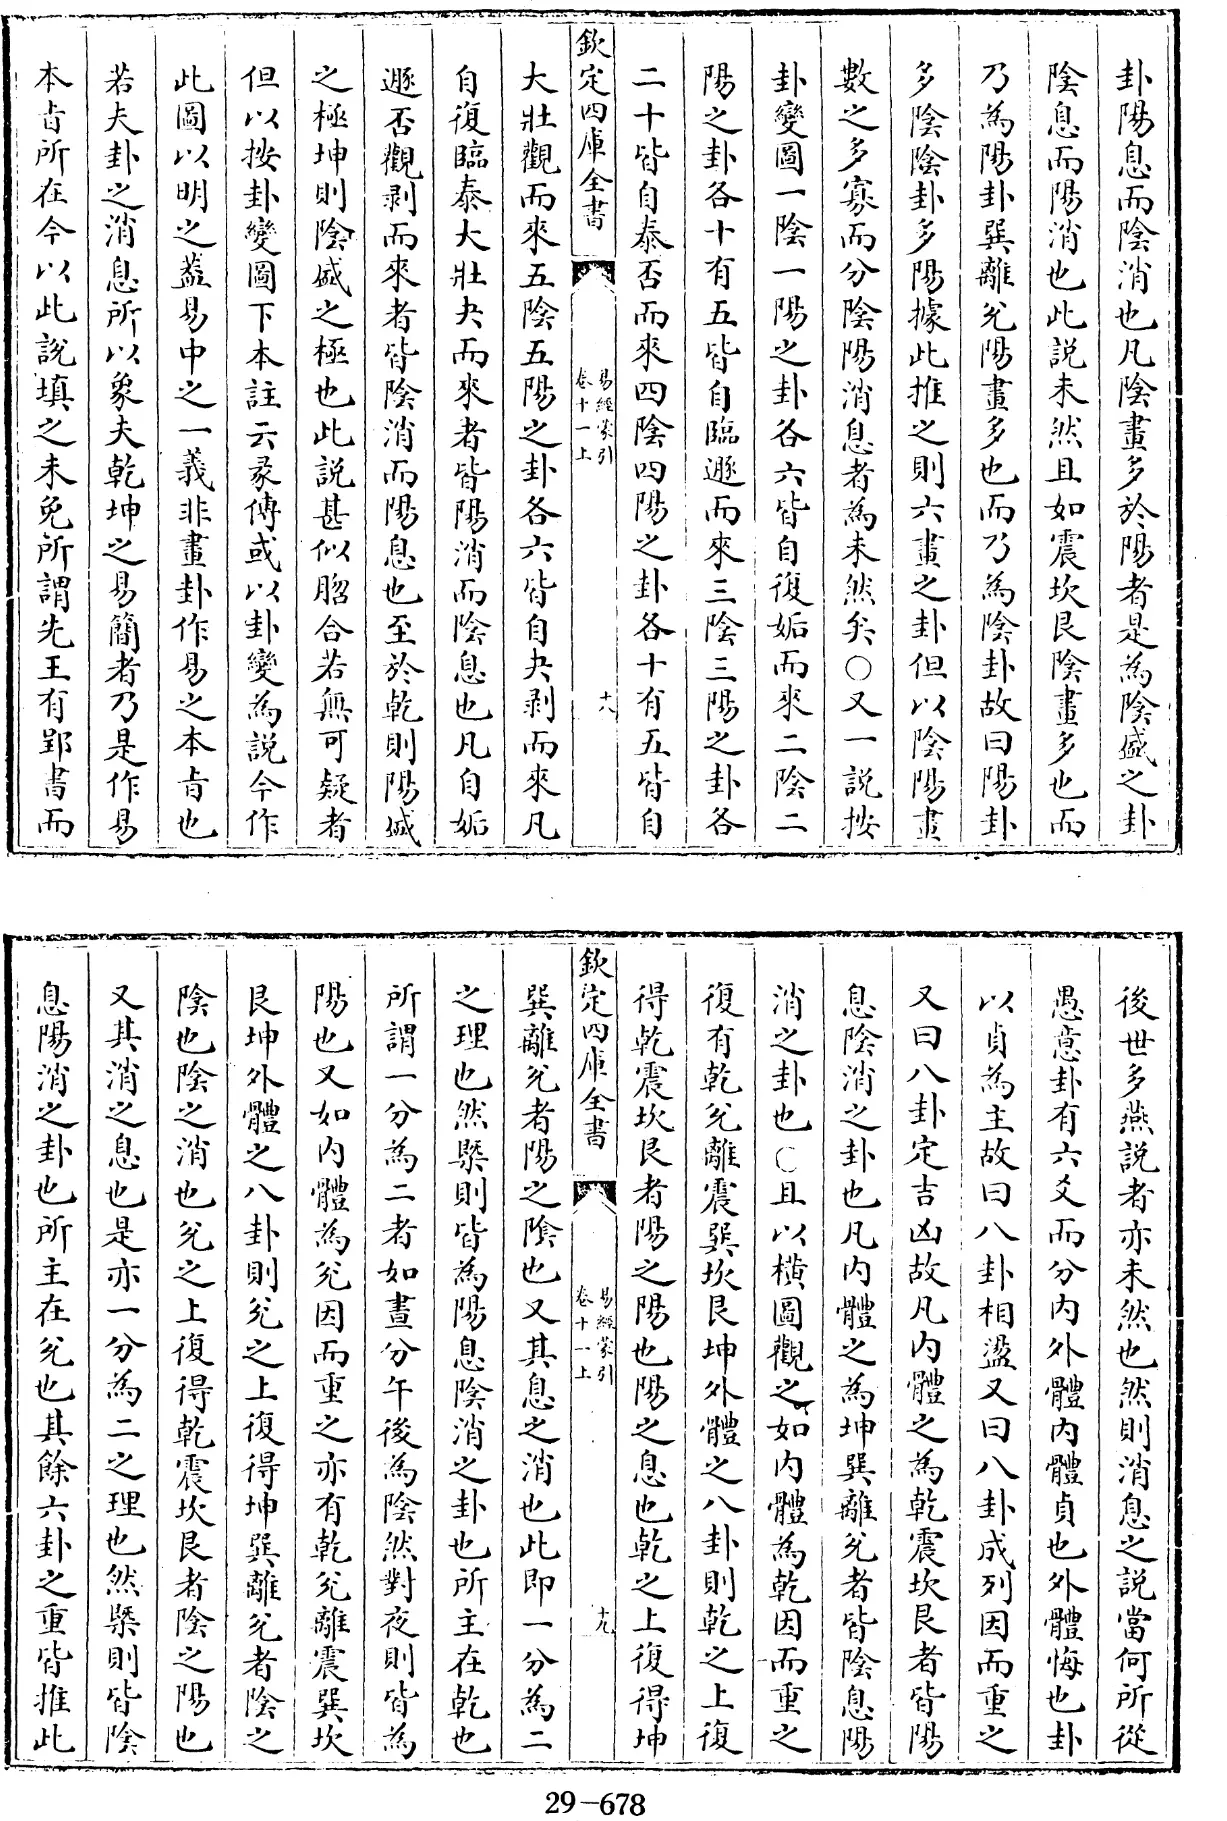 卦陽息而陰消也凡陰畫多於陽者是為陰盛之卦
陰息而陽消也此說未然且如震坎艮陰畫多也而
乃為陽卦巽離兊陽畫多也而乃為陰卦故曰陽卦
多陰陰卦多陽據此推之則六畫之卦但以陰陽畫
數之多寡而分陰陽消息者為未然矣○又一說按
卦變圖一陰一陽之卦各六皆自復姤而來二陰二
陽之卦各十有五皆自臨遯而來三陰三陽之卦各
二十皆自泰否而來四陰四陽之卦各十有五皆自
欽定四庫全書
易經蒙引
卷十一上
十八
大壯觀而來五陰五陽之卦各六皆自夬剥而來凡
自復臨泰大壯夬而來者皆陽消而陰息也凡自姤
遯否觀剥而來者皆陰消而陽息也至於乾則陽盛
之極坤則陰盛之極也此說甚似脗合若無可疑者
但以按卦變圖下本註云彖傳或以卦變為說今作
此圖以明之葢易中之一義非畫卦作易之本㫖也
若夫卦之消息所以象夫乾坤之易簡者乃是作易
本㫖所在今以此說填之未免所謂先王有郢書而
後世多燕說者亦未然也然則消息之說當何所從
愚意卦有六爻而分内外體内體貞也外體悔也卦
以貞為主故曰八卦相盪又曰八卦成列因而重之
又曰八卦定吉凶故凡内體之為乾震坎艮者皆陽
息陰消之卦也凡内體之為坤巽離兊者皆陰息陽
消之卦也○且以橫圖觀之如内體為乾因而重之
復有乾兊離震巽坎艮坤外體之八卦則乾之上復
得乾震坎艮者陽之陽也陽之息也乾之上復得坤
欽定四庫全書
易經蒙引
卷十一上
十九
巽離兊者陽之陰也又其息之消也此即一分為二
之理也然槩則皆為陽息陰消之卦也所主在乾也
所謂一分為二者如晝分午後為陰然對夜則皆為
陽也又如内體為兊因而重之亦有乾兊離震巽坎
艮坤外體之八卦則兊之上復得坤巽離兊者陰之
陰也陰之消也兊之上復得乾震坎艮者陰之陽也
又其消之息也是亦一分為二之理也然槩則皆陰
息陽消之卦也所主在兊也其餘六卦之重皆推此
29-678